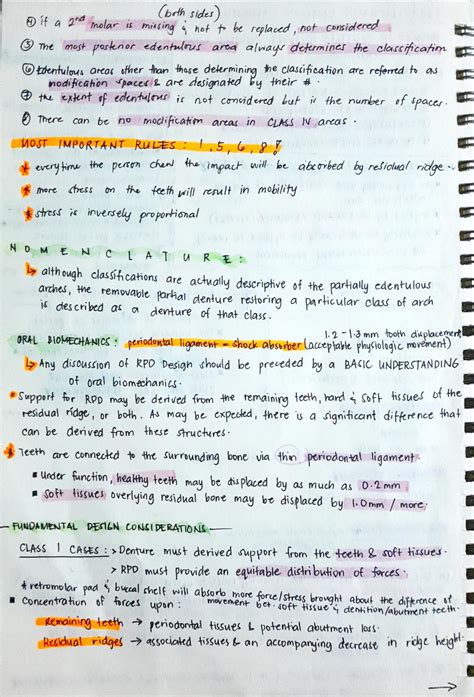 (both sides)
④ if a 2nd molar is missing & not to be replaced, not considered
⑤ The most posterior edentulous area always determines the classification
⑥ Edentulous areas other than those determining the classification are referred to as
modification spaces & are designated by their #.
⑦ the extent of edentulous is not considered but is the number of spaces.
⑧ There can be no modification areas in CLASS IV areas.
MOST IMPORTANT RULES: 1, 5, 6, 8!
* everytime the person chew the impact will be absorbed by residual ridge.
* more stress on the teeth will result in mobility
* stress is inversely proportional
NOMENCLATURE:
↳ although classifications are actually descriptive of the partially edentulous
arches, the removable partial denture restoring a particular class of arch
is described as a denture of that class.
1.2 - 1.3 mm tooth displacement
ORAL BIOMECHANICS: periodontal ligament - shock absorber (acceptable physiologic movement)
↳ Any discussion of RPD Design should be preceded by a BASIC UNDERSTANDING
of oral biomechanics.
• Support for RPD may be derived from the remaining teeth, hard & soft tissues of the
residual ridge, or both. As may be expected, there is a significant difference that
can be derived from these structures.
* Teeth are connected to the surrounding bone via thin periodontal ligament.
▪ Under function, healthy teeth may be displaced by as much as 0.2mm
▪ soft tissues overlying residual bone may be displaced by 1.0mm / more.
FUNDAMENTAL DESIGN CONSIDERATIONS
CLASS I CASES: > Denture must derived support from the teeth & soft tissues.
> RPD must provide an equitable distribution of forces.
* retromolar pad & buccal shelf will absorb more force/stress brought about the difference of
movement bet. soft tissue & dentition/abutment teeth.
▪ Concentration of forces upon:
Remaining teeth → periodontal tissues & potential abutment loss.
Residual ridges → associated tissues & an accompanying decrease in ridge height.
→